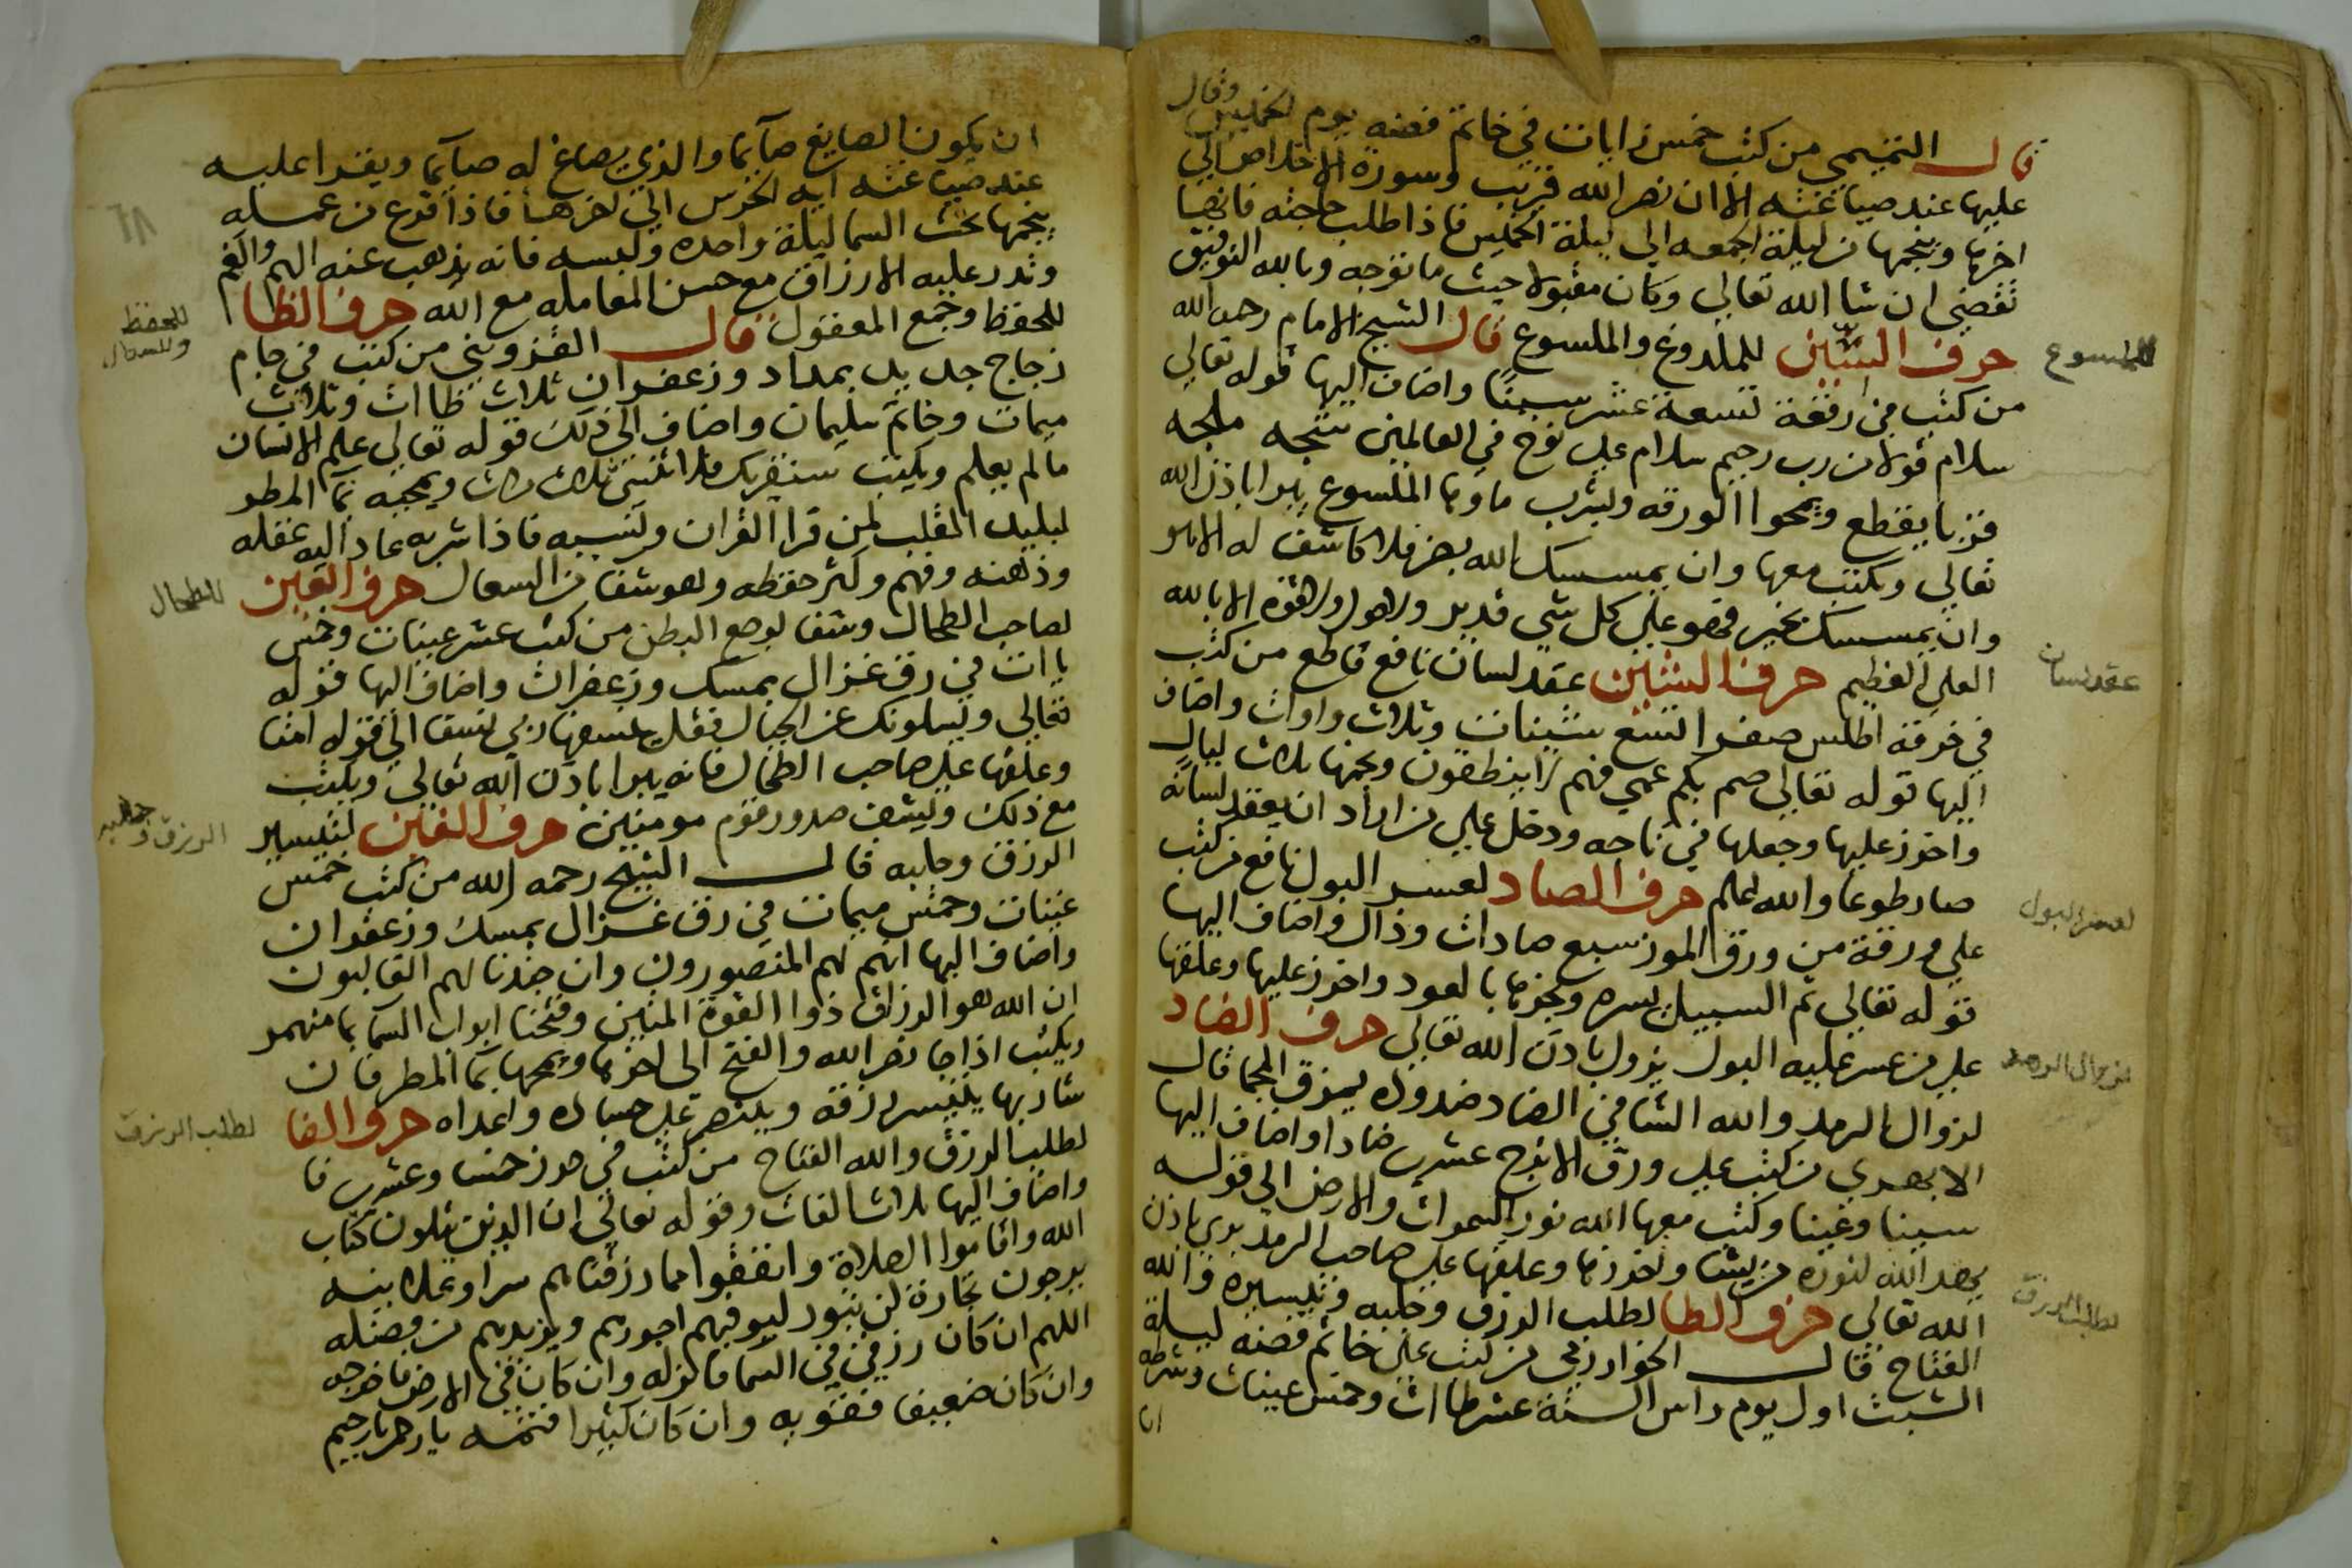 وقال
قال التميمي من كتب خمس زايات في خاتم فضه يوم الخميس
عليها عند صياغته الا ان نصر الله قريب وسورة الاخلاص الي
اخرها وينجمها من ليلة الجمعه الي ليلة الخميس فاذا طلب حاجته فانها
تقضي ان شا الله تعالي وكان مقبولا حيث ما توجه وبالله التوفيق
حرف السين للملدوغ والملسوع قال الشيخ الامام رحمه الله
للملسوع
من كتب في رقعة تسعة عشر سينا واضاف اليها قوله تعالي
سلام قولا من رب رحيم سلام علي نوح في العالمين
ويمحوا الورقه وليشرب ماوها الملسوع يبرا باذن الله
تعالي ويكتب معها وان يمسسك الله بضر فلا كاشف له الا هو
وان يمسسك بخير فهو علي كل شي قدير ولا حول ولا قوة الا بالله
العلي العظيم حرف الشين عقد لسان نافع قاطع من كتب
عقد لسان
في خرقة اطلس صفرا تسع شينات وثلاث واوات واضاف
اليها قوله تعالي صم بكم عمي فهم لا ينطقون ونجمها ثلاث ليال
واخوز عليها وجعلها في تاجه ودخل علي من اراد ان يعقد لسانه
صار طوعا والله اعلم حرف الصاد لعسر البول نافع من كتب
لعسر البول
علي ورقة من ورق الموز سبع صادات وذال واضاف اليها
قوله تعالي ثم السبيل يسره وبخرها بالعود واخوز عليها وعلقها
علي من عسر عليه البول يزول باذن الله تعالي حرف الضاد
لزوال الرمد
لزوال الرمد والله الشافي الضاد ضدوده يمزق الحجا قال
الابهري من كتب علي ورق الاترج عشر ضادا واضاف اليها
سينا وعينا وكتب معها الله نور السموات والارض الي قوله
يهد الله لنوره من يشا واخوزها وعلقها علي صاحب الرمد بري باذن
الله تعالي حرف الطا لطلب الرزق وجلبه وتيسيره والله
لطلب الرزق
الفتاح قال الخوارزمي من كتب علي خاتم فضه ليلة
السبت اول يوم راس السنة عشر طاات وخمس عينات وشرطه
ان
ان يكون الصايغ صايما والذي يصاغ له صايما ويقرا عليه
٦٨
عند صياغته اية الحرس الي اخرها فاذا فرغ من عمله
ينجمها تحت السما ليلة واحده ولبسه فانه يذهب عنه الهم والغم
وتدر عليه الارزاق مع حسن المعامله مع الله حرف الظا
للحفظ وجمع المعقول قال القزويني من كتب في جام
للحفظ
وللسعال
زجاج جديد بمداد وزعفران ثلاث ظاات وثلاث
ميمات وخاتم سليمان واضاف الي ذلك قوله تعالي علم الانسان
ما لم يعلم ويكتب سنقريك فلا تنسي ثلاث مرات ويمحيه بما المطر
لبليد القلب لمن قرا القران ونسيه فاذا شربه عاد اليه عقله
وذهنه وفهم وكثر حفظه وهو شفا من السعال حرف العين
للطحال
لصاحب الطحال وشفا لوجع البطن من كتب عشر عينات وخمس
ياات في رق غزال بمسك وزعفران واضاف اليها قوله
تعالي ويسلونك عن الجبال فقل ينسفها ربي نسفا الي قوله امتا
وعلقها علي صاحب الطحال فانه يبرا باذن الله تعالي ويكتب
مع ذلك ويشف صدور قوم مومنين حرف الغين لتيسير
الرزق وجلبه
الرزق وجلبه قال الشيخ رحمه الله من كتب خمس
غينات وخمس ميمات في رق غزال بمسك وزعفران
واضاف اليها انهم لهم المنصورون وان جندنا لهم الغالبون
ان الله هو الرزاق ذوا القوة المتين وفتحنا ابواب السما بما منهمر
ويكتب اذا جا نصر الله والفتح الي اخرها ويمحها بما المطر فان
شاربها يتيسر رزقه وينتصر علي حساده واعداه حرف الفا
لطلب الرزق
لطلب الرزق والله الفتاح من كتب في حرز خمسا وعشرين فا
واضاف اليها ثلاث الفات وقوله تعالي ان الذين يتلون كتاب
الله واقاموا الصلاة وانفقوا مما رزقناهم سرا وعلانيه
يرجون تجارة لن تبور ليوفيهم اجورهم ويزيدهم من فضله
اللهم ان كان رزقي في السما فانزله وان كان في الارض فاخرجه
وان كان ضعيفا فقويه وان كان كثيرا فتممه يا رحمن يا رحيم